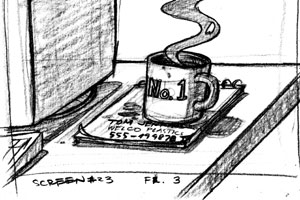 No.1
TOM
WELCO PLASTICS
SCREEN #23 FR. 3